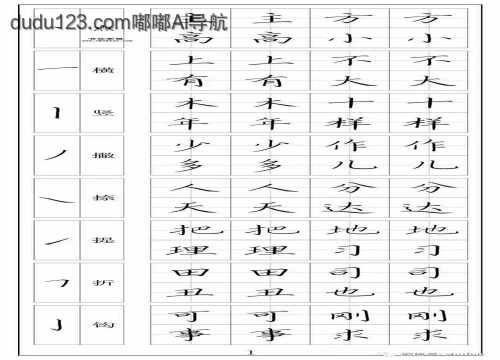 dudu123.com嘟嘟AI导航
主 主 方 方
高 高 小 小
一 横 上 上 不 不
有 有 大 大
竖 木 木 十 十
年 年 样 样
撇 少 少 作 作
多 多 几 几
捺 人 人 分 分
天 天 达 达
提 把 把 地 地
理 理 习 习
折 田 田 司 司
丑 丑 也 也
钩 可 可 刚 刚
事 事 求 求
1